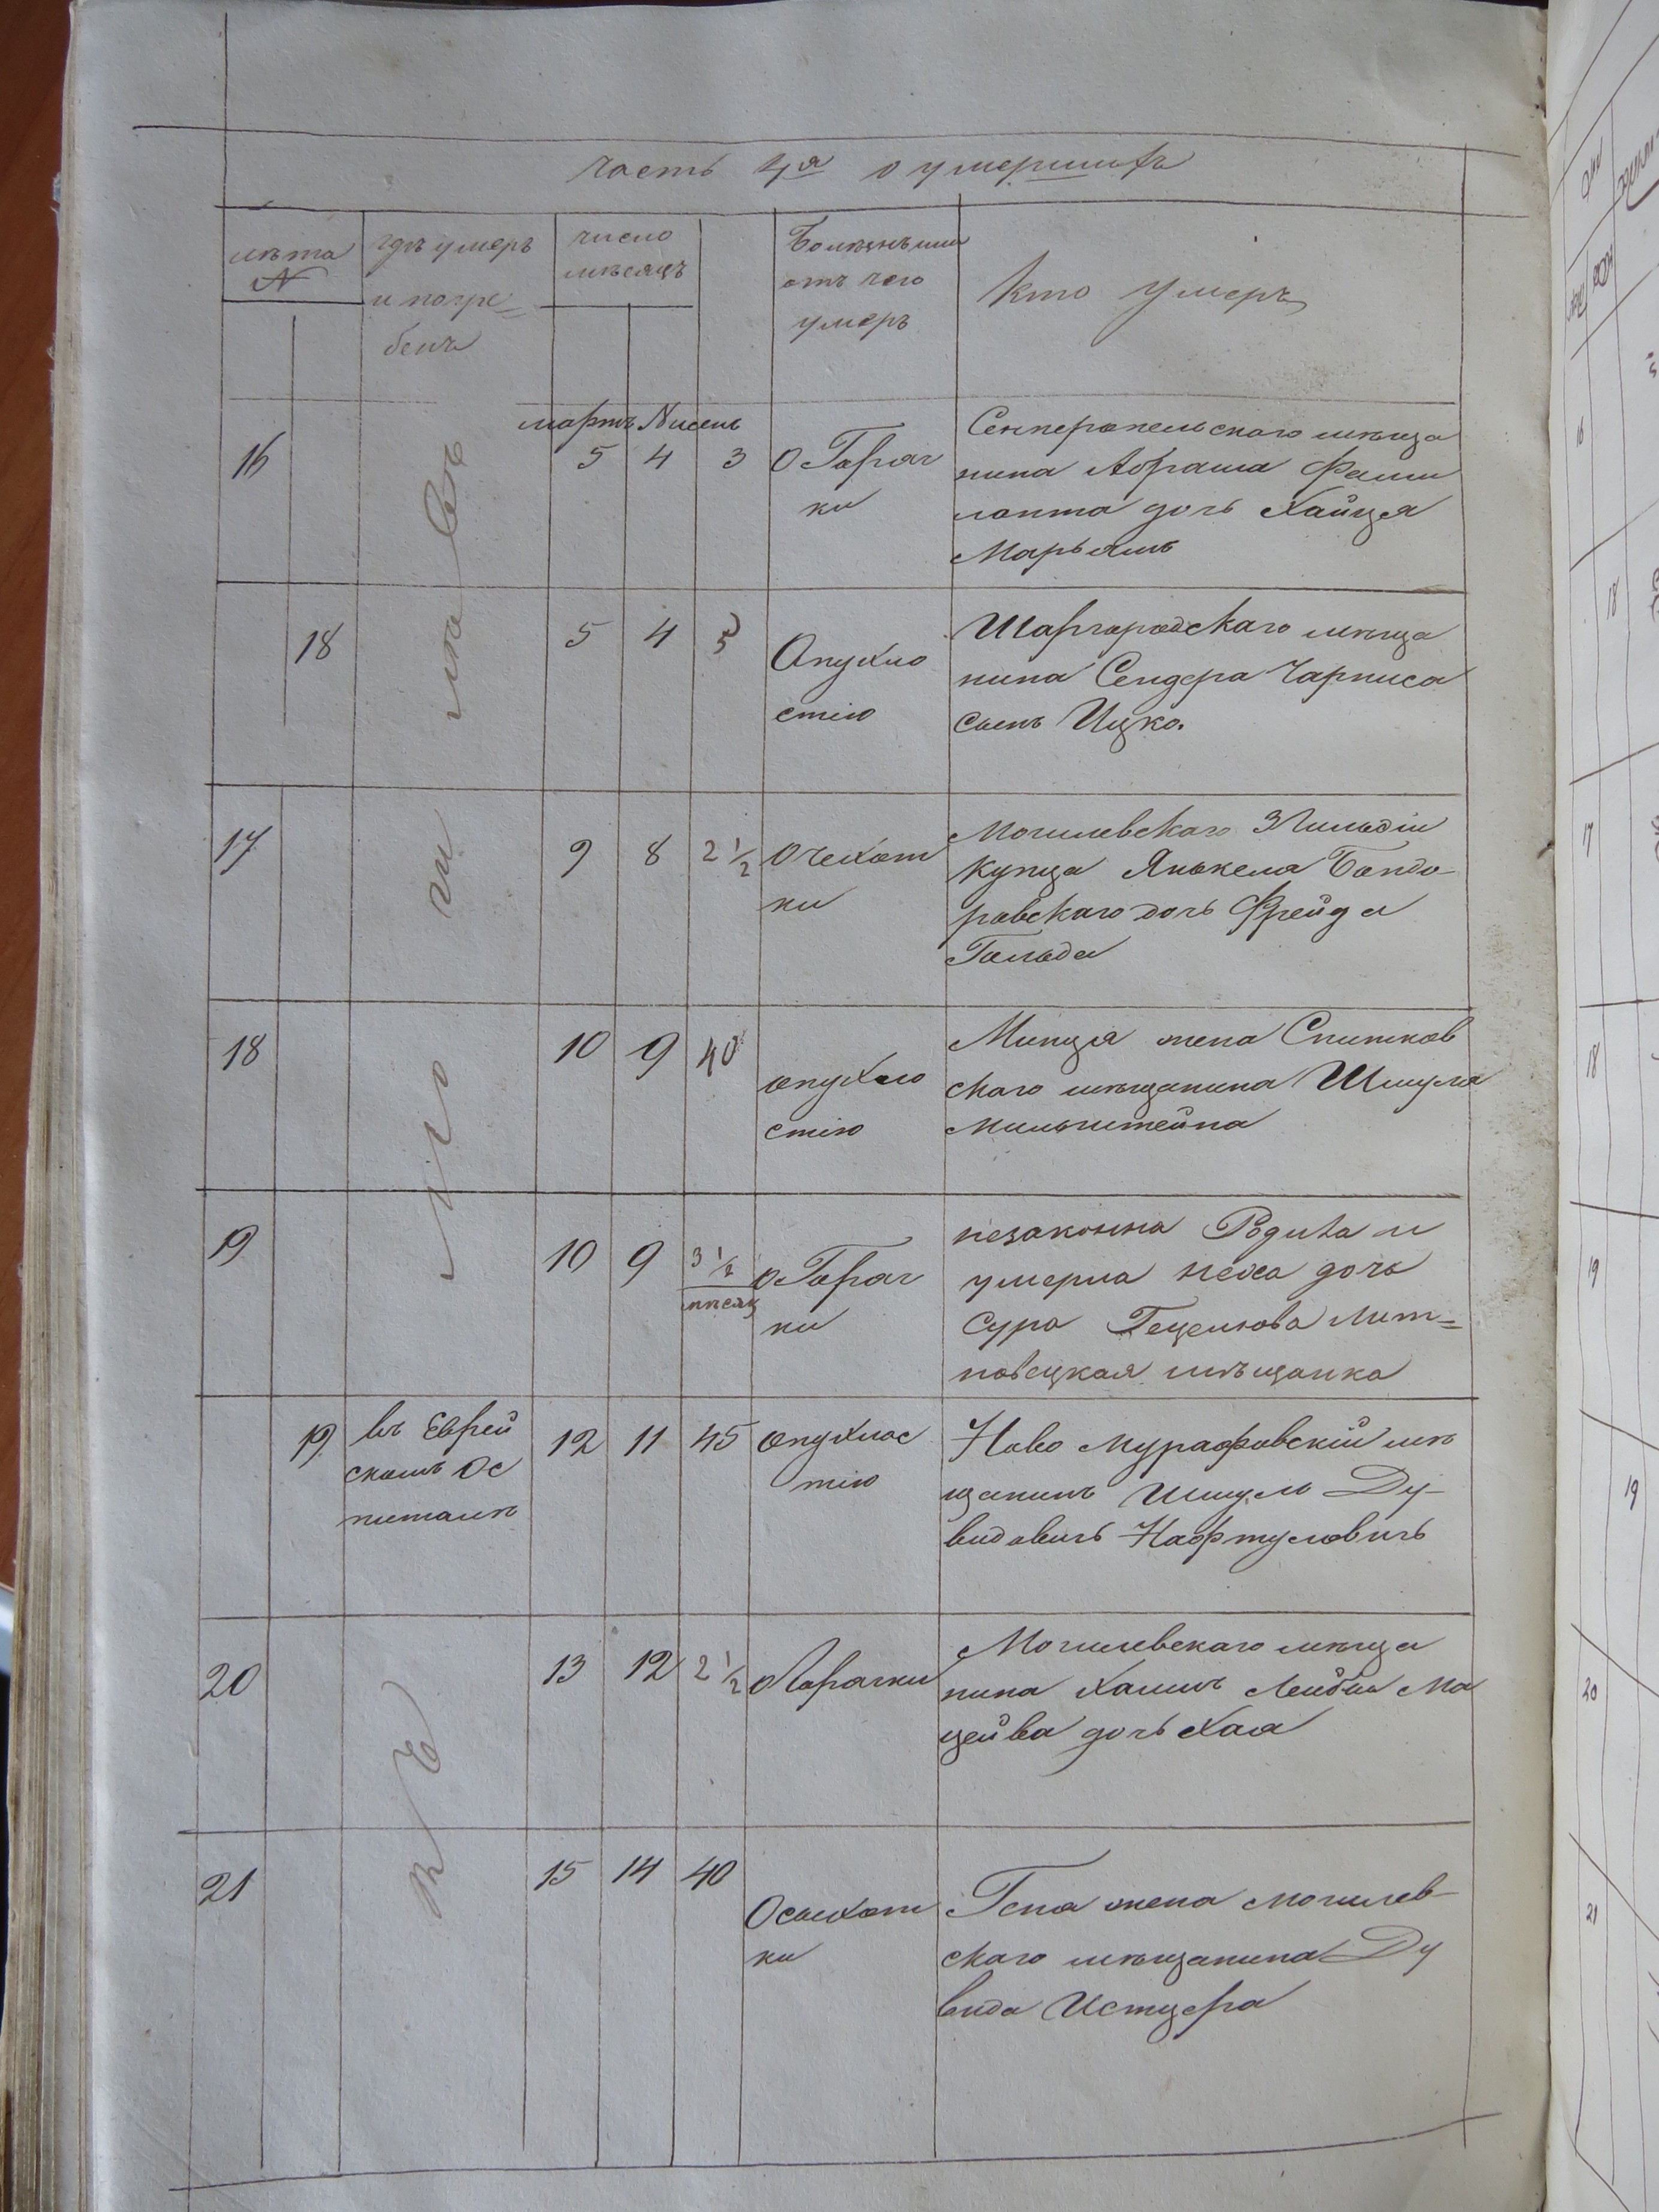 часть 4я о умершихъ
лѣта
N
гдѣ умеръ
и погре=
бенъ
число
мѣсяцъ
Болѣзнь или
отъ чего
умеръ
Кто умеръ
мартъ Нисень
въ Могилевѣ
16 5 4 3 О Горяч
ки
Сенперопельскаго мѣща
нина Абрама
дочь Хайця
Марьямъ
18 5 4 5 Опухло
стію
Шаргородскаго мѣща
нина Сендера Чарниса
сынъ Ицко.
17 9 8 2 1/2 О чехот
ки
Могилевскаго 3 Гильдіи
Купца Янькеля Бондо
ровскаго дочь Фрейда
Гольда
18 10 9 40 опухло
стію
Минця жена Снитков
скаго мѣщанина Шмуля
Мильштейна
19 10 9 3 1/2
мѣсяц
о Горяч
ки
незаконна Родила и
умерла Неха дочь
Сура Гецелюва Лит=
новецкая мѣщанка
19 въ Еврей
скомъ Ос
питалѣ
12 11 45 опухлос
тію
Ново Мурафовскій мѣ
щанинъ Шмуль Ду-
видовичъ Нафтуловичъ
20 13 12 2 1/2 о Горячки
Могилевскаго мѣща
нина Хаимъ Лейбы Ма
цейва дочь Хая
21 15 14 40 О сыхот
ки
Геня жена Могилев-
скаго мѣщанина Ду
вида Истцера
16
18
17
18
19
19
20
21